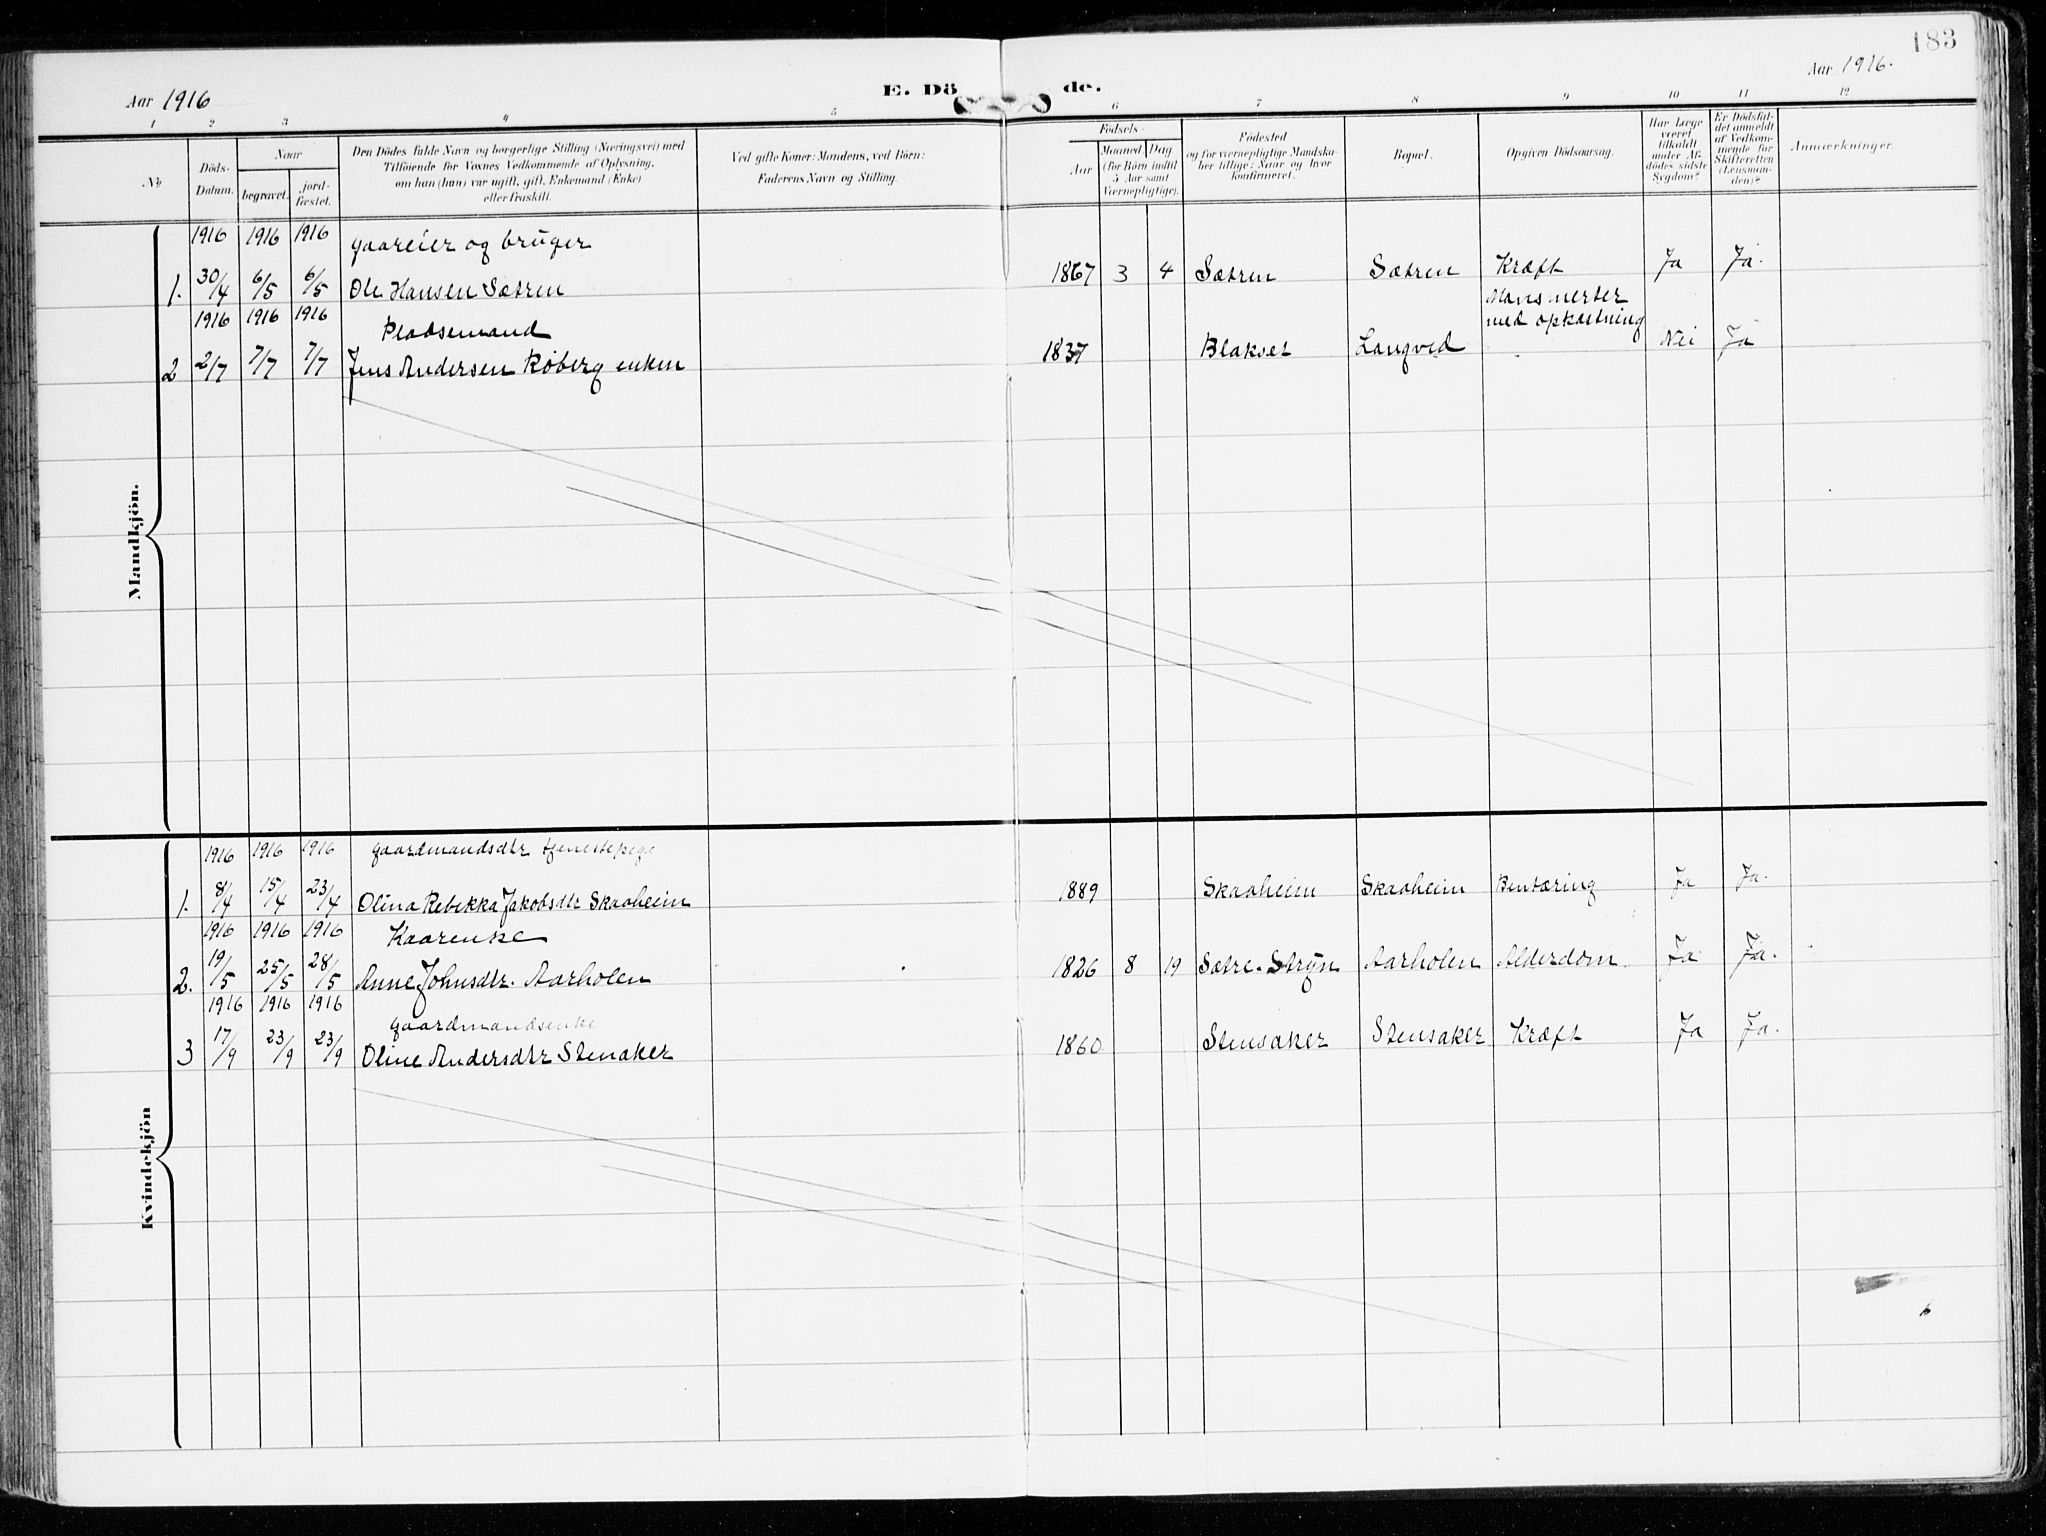 183
Aar 1916
E. Dö de.
Aar 1916.
1 2 3 4 5 6 7 8 9 10 11 12
No
Döds-
Datum.
Naar
begravet.
jord-
fæstet.
Den Dödes fulde Navn og borgerlige Stilling (Næringsvei) med
Tilföiende for Voxnes Vedkommende af Oplysning,
om han (hun) var ugift, gift, Enkemand (Enke)
eller fraskilt.
Ved gifte Koner: Mandens, ved Börn:
Faderens Navn og Stilling.
Födsels-
Aar
Maaned
Dag
(for Börn indtil
5 Aar samt
Værnepligtige).
Födested
og for værnepligtige Mandska-
ber tillige: Naar og hvor
konfirmeret.
Bopæl.
Opgiven Dödsaarsag.
Har Læge
været
tilkaldt
under Af-
dödes sidste
Sygdom?
Er Dödsfal-
det anmeldt
af Vedkom-
mende for
Skifteretten
(Lensman-
den)?
Anmærkninger.
Mandkjön.
1916 1916 1916 gaareier og bruger
1. 30/4 6/5 6/5 Ole Hansen Sætren 1867 3 4 Sætren Sætren Kræft Ja Ja.
1916 1916 1916 Pladsemand
2 2/7 7/7 7/7 Jens Andersen Röberg enkem 1837 Blakset Langved med opkastning Nei Ja
Kvindekjön
1916 1916 1916 gaardmandsdtr tjenestepege
1. 8/4 15/4 23/4 Olina Rebekka Jakobsdtr Skaaheim 1889 Skaaheim Skaaheim Bentæring Ja Ja.
1916 1916 1916 Kaarenke
2. 19/5 25/5 28/5 Anne Johnsdtr. Aarholen 1826 8 19 Sætre. Stryn Aarholen Alderdom. Ja Ja.
1916 1916 1916 gaardmandsenke
3 17/9 23/9 23/9 Oline Andersdtr Stenaker 1860 Stensaker Stensaker Kræft Ja Ja.